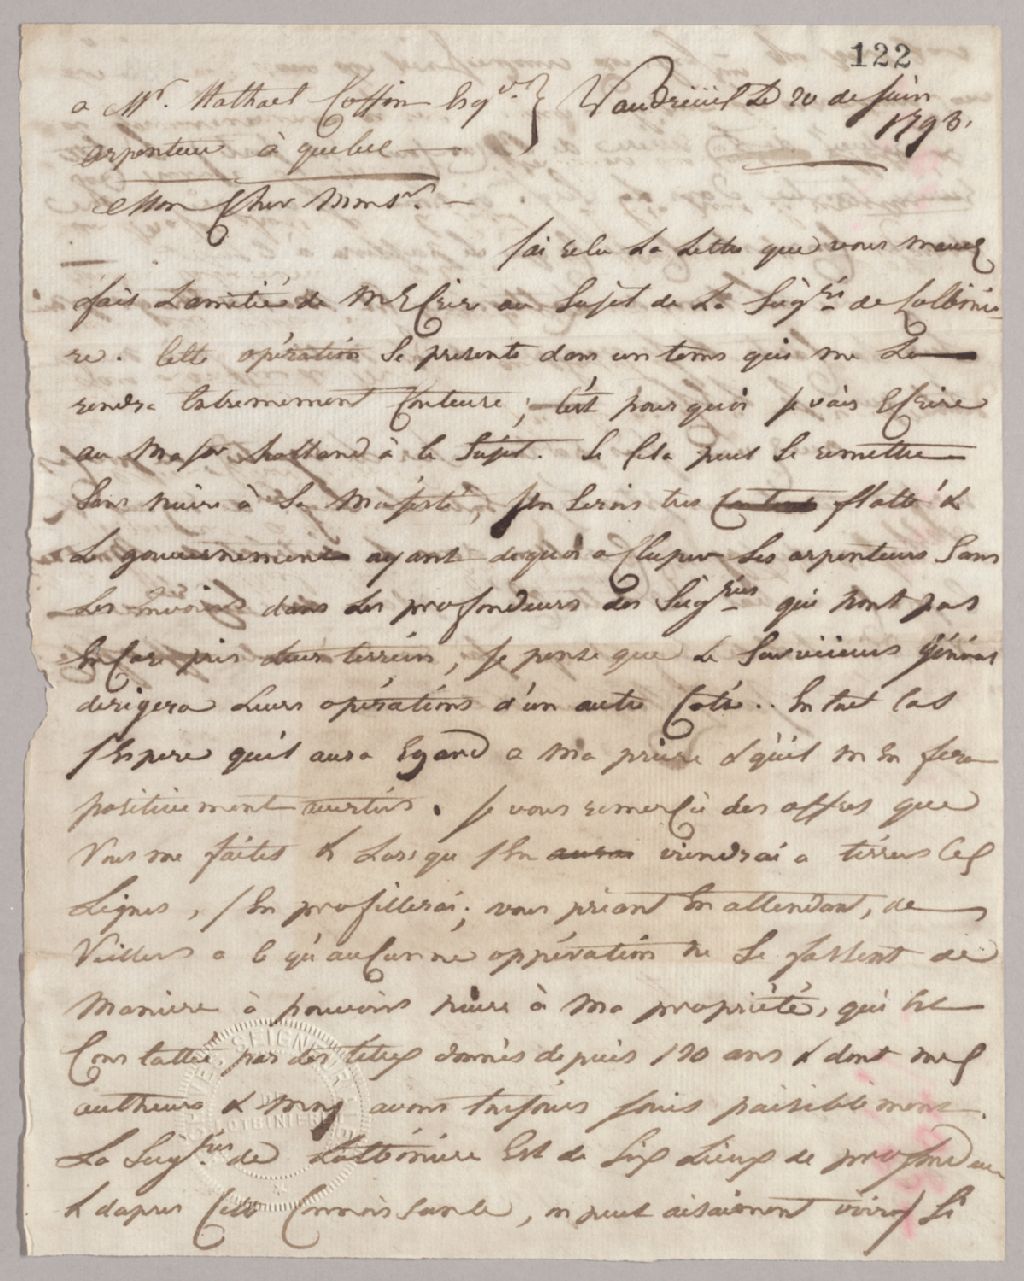 122
a Mr. Nathael Coffin Esqr. } Vaudreüil Le 20 de juin
1793.
arpenteur à quebec
Mon Cher Monsr.
J'ai relu La Lettre que vous mavez
fait L'amitié de M'Ecrire au Sujet de La Seigrie de Lotbinie-
re. Cette opération Se presente dans un tems qui me La
rendra Extremement Couteuse; C'est pourquoi je vais Ecrire
au Major holland à ce Sujet. Si Cela peut Se remettre
Sans nuire à Sa Majesté, j'En Serois tres flatté &
Le gouvernement ayant dequoi oCCuper Les arpenteurs Sans
Les Envoier dans Les profondeurs des Seigries qui n'ont pas
EnCore pris Leur terrein, je pense que Le Surveieur général
dirigera Leurs opérations d'un autre Coté.. En tout Cas
j'Espere qu'il aura Egard a Ma priere & qu'il m'En fera
positivement avertir. je vous remerCie des offres que
Vous me faites & Lorsque j'En viendrai a tirer Ces
Lignes, j'En profitterai; vous priant En attendant, de
Veiller a Ce qu'auCunne oppération ne Se fassent de
Maniere à pouvoir nuire à Ma propriété, qui Est
Constattée par des titres donnés depuis 120 ans & dont mes
autheurs & Moy avons toujours jouis paisiblement.
SEIGNEUR
LOTBINIERE
La Seigrie de Lotbiniere Est de Six Lieux de profondeur
& dapres Cette Connoissance, on peut aisaiement voir Si